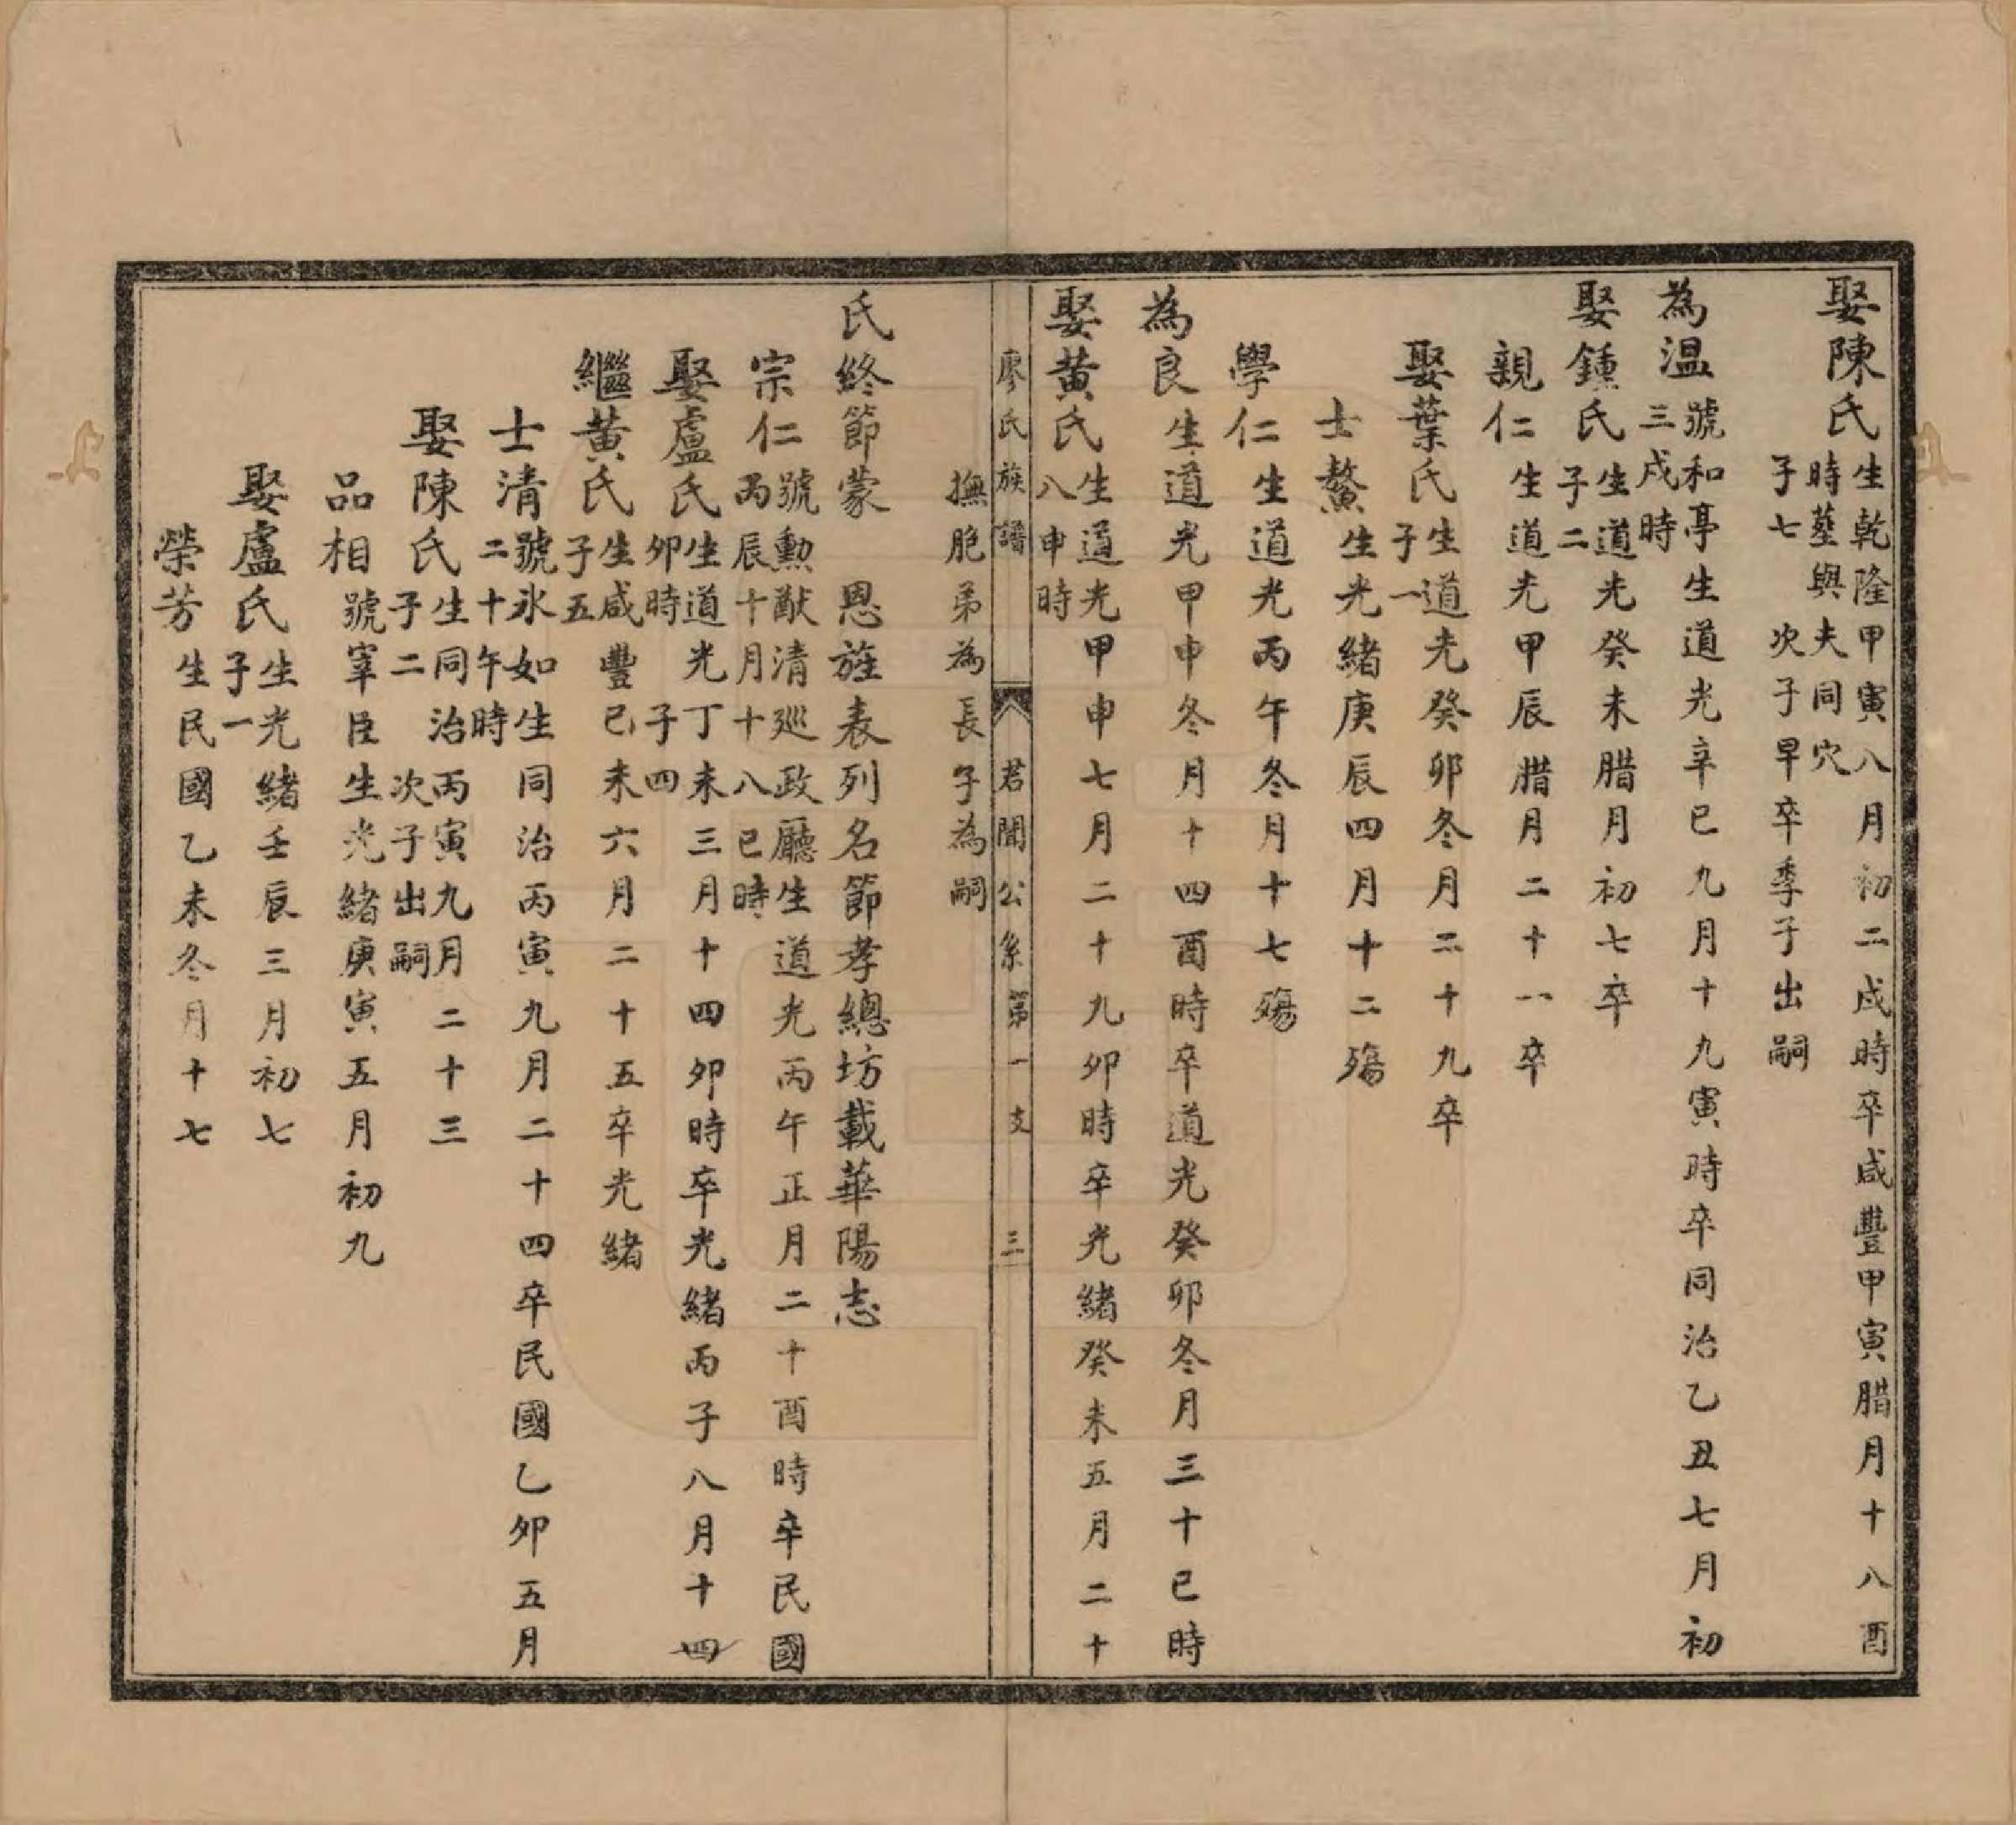 娶陳氏生乾隆甲寅八月初二戌時卒咸豐甲寅腊月十八酉
時墓與夫同穴
子七 次子早卒季子出嗣
為温號和亭生道光辛巳九月十九寅時卒同治乙丑七月初
三戌時
娶鍾氏生道光癸未腊月初七卒
子二
親仁生道光甲辰腊月二十一卒
娶葉氏生道光癸卯冬月二十九卒
子一
士鰲生光緒庚辰四月十二殤
學仁生道光丙午冬月十七殤
為良生道光甲申冬月十四酉時卒道光癸卯冬月三十巳時
娶黃氏生道光甲申七月二十九卯時卒光緒癸未五月二十
八申時
廖氏族譜 君聞公系第一支 三
撫胞弟為長子為嗣
氏終節蒙 恩旌表列名節孝總坊載華陽志
宗仁號勳猷清廵政廳生道光丙午正月二十酉時卒民國
丙辰十月十八巳時
娶盧氏生道光丁未三月十四卯時卒光緒丙子八月十四
卯時 子四
繼黃氏生咸豐己未六月二十五卒光緒
子五
士清號氷如生同治丙寅九月二十四卒民國乙卯五月
二十午時
娶陳氏生同治丙寅九月二十三
子二 次子出嗣
品相號宰臣生光緒庚寅五月初九
娶盧氏生光緒壬辰三月初七
子一
榮芳生民國乙未冬月十七